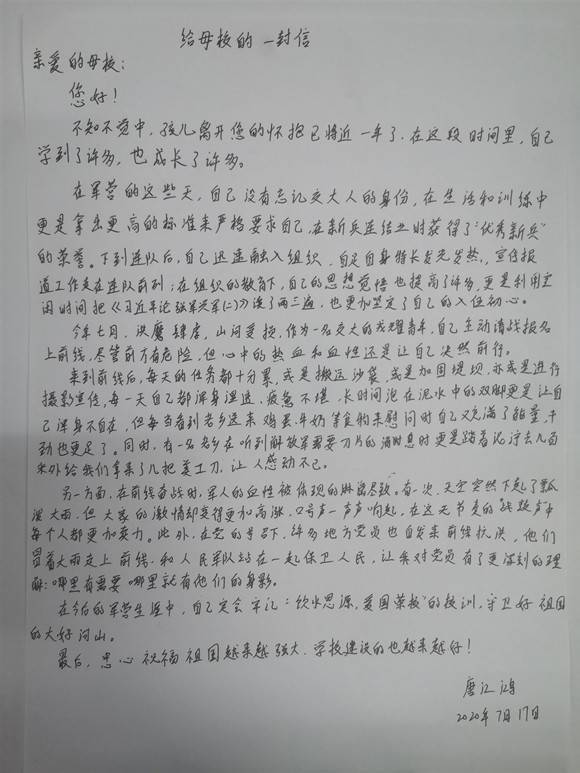 给母校的一封信
亲爱的母校:
您好!
不知不觉中,孩儿离开您的怀抱已将近一年了.在这段时间里,自己
学到了许多,也成长了许多。
在军营的这些天,自己没有忘记交大人的身份,在生活和训练中
更是拿出更高的标准来严格要求自己,在新兵连结业时获得了“优秀新兵”
的荣誉。下到连队后,自己迅速融入组织,自足自身特长发光发热,宣传报
道工作走在连队前列;在组织的教育下,自己的思想觉悟也提高了许多,更是利用空
闲时间把《习近平论强军兴军(二)》读了两三遍,也更加坚定了自己的入伍初心。
今年七月,洪魔肆虐,山河受损,作为一名交大的戎耀青年,自己主动请战报名
上前线,尽管前方有危险,但心中的热血和血性还是让自己决然前行。
来到前线后,每天的任务都十分累,或是搬运沙袋,或是加固堤坝,亦或是进行
摄影宣传,每一天自己都浑身湿透、疲惫不堪,长时间泡在泥水中的双脚更是让自
己浑身不自在,但每当看到老乡送来鸡蛋、牛奶等食物来慰问时自己又充满了能量,干
劲也更足了。同时,有一名老乡在听到解放军需要刀片的消息时更是踏着泥泞去几百
米外给我们拿来了几把美工刀,让人感动不已。
另一方面,在前线奋战时,军人的血性被体现的淋漓尽致。有一次,天空突然下起了瓢
泼大雨,但大家的激情却变得更加高涨,口号声一声声响起,在这无节奏的“战鼓声”中
每个人都更加卖力。此外,在党的号召下,许多地方党员也自发来前线抗洪,他们
冒着大雨走上前线,和人民军队站在一起保卫人民,让我对党员有了更深刻的理
解:哪里有需要哪里就有他们的身影。
在今后的军营生涯中,自己定会牢记“饮水思源,爱国荣校”的校训,守卫好祖国
的大好河山。
最后,衷心祝福祖国越来越强大、学校建设的也越来越好!
唐江鸿
2020年7月17日